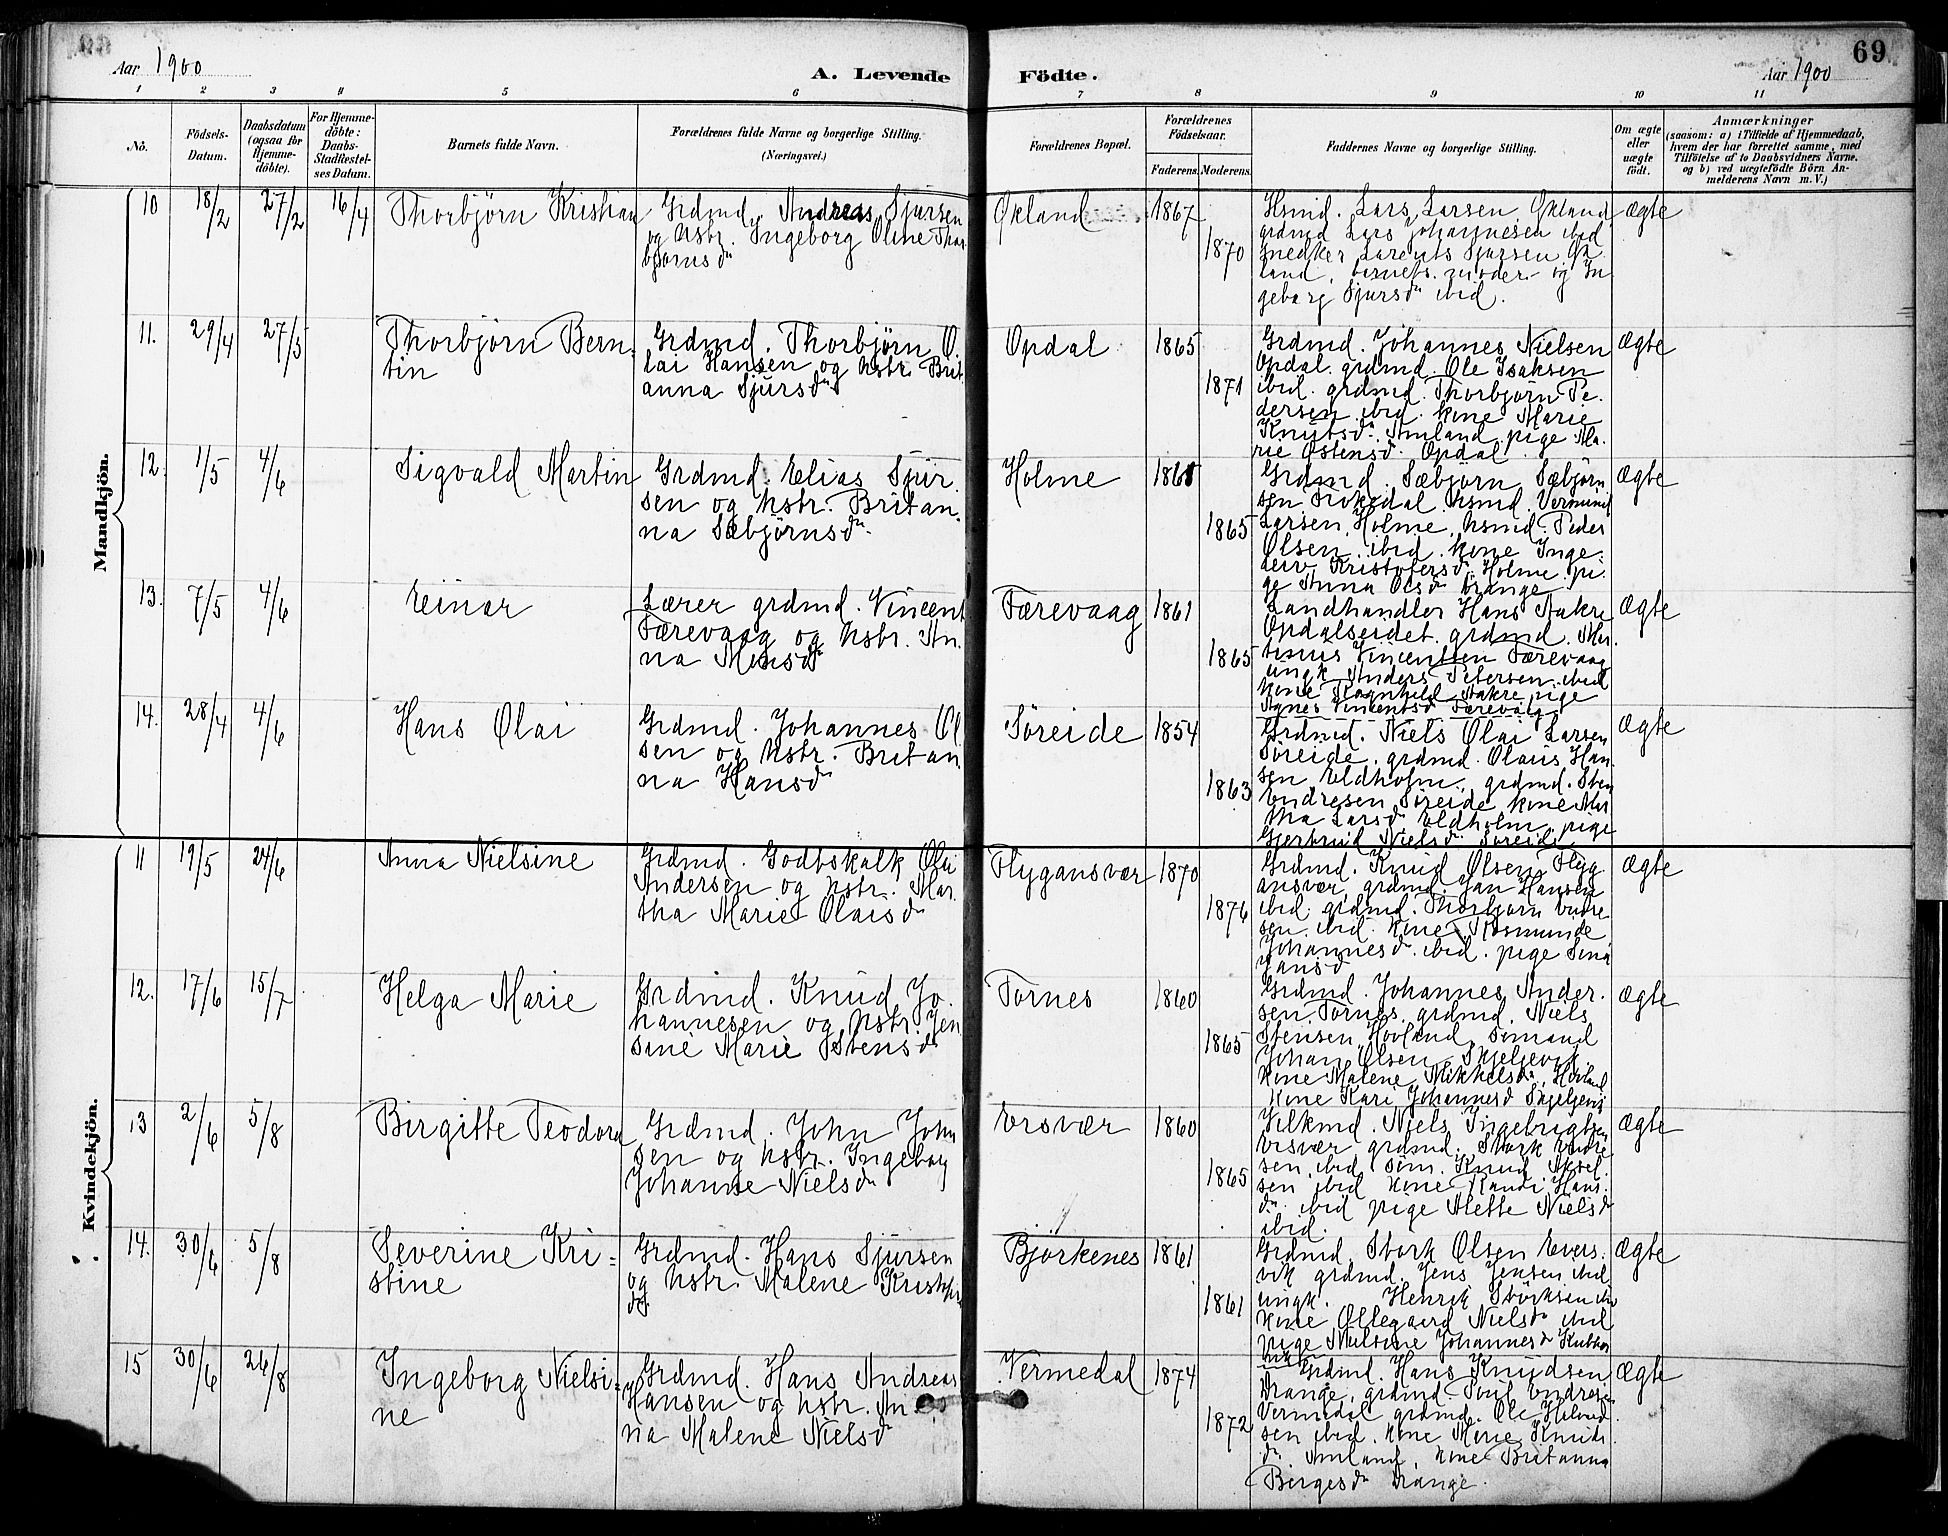 69
Aar 1900
A. Levende Födte.
Aar 1900
1 2 3 4 5 6 7 8 9 10 11
No.
Födsels-Datum.
Daabsdatum (ogsaa for Hjemme-döbte).
For Hjemme-döbte: Daabs-Stadfæstel-ses Datum.
Barnets fulde Navn.
Forældrenes fulde Navne og borgerlige Stilling. (Næringsvei.)
Forældrenes Bopæl.
Forældrenes Födselsaar.
Faderens. Moderens.
Faddernes Navne og borgerlige Stilling.
Om ægte eller uægte födt.
Anmærkninger
(saasom: a) i Tilfælde af Hjemmedaab,
hvem der har forrettet samme, med
Tilföielse af to Daabsvidners Navne.
og b) ved uægtefödte Börn An-
melderens Navn m. V.)
Mandkjön.
10 18/2 27/2 16/4 Thorbjörn Kristian
Grdmd. Andreas Sjursen
og hstr. Ingeborg Oline Thor
bjørnsdr
Økland 1867 1870
Hsmd. Lars Larsen Økland
grdmd Lars Johannesen ibid
snedker Larents Sjursen Øk
land, barnets moder og In
geborg Sjursdr ibid.
Ægte
11. 29/4 27/5 Thorbjörn Bern-
tin
Grdmd. Thorbjörn O
lai Hansen og hstr. Brit
anna Sjursdr
Opdal 1865 1871
Grdmd. Johannes Nielsen
Opdal. grdmd. Ole Isaksen
ibid. grdmd. Thorbjörn Pe-
dersen ibid. kone Marie
Knutsdr. Amland. pige Ma-
rie Östensdr. Opdal
Ægte
12. 1/5 4/6 Sigvald Martin
Grdmd. Elias Sjur
sen og hstr. Britan-
na Sæbjörnsdr.
Holme 1865
Grdmd. Sæbjörn Sæbjörn
sen Frokedal. hsmd. Vermund
Larsen Holme, hsmd. Peder
Olsen ibid. kone Inge-
leiv Kristofersdr. Holme. pi-
ge Anna Olsdr Drange
Ægte
13. 7/5 4/6 Einar
Lærer grdmd. Vincent
Færevaag og hstr. An-
na Monsdr
Færevaag 1861 1865
Landhandler Hans Aakre
Opdalseidet. grdmd. Mar
tinus Vincentsen Færevaag
ungk. Anders Petersen ibid
kone Ragnhild Aakre pige
Agnes Vincentsdr Færevaag
Ægte
14. 28/4 4/6 Hans Olai
Grdmd. Johannes Ol
sen og hstr. Britan-
na Hansdr
Söreide 1854 1863
Grdmd. Niels Olai Larsen
Söreide. grdmd. Olaus Han-
sen Eldholm, grdmd. Sten
Endresen Söreide kone Mar
tha Larsdr Eldholm. pige
Gjertrud Nielsdr Söreide
Ægte
Kvindekjön.
11 19/5 24/6 Anna Nielsine
Grdmd. Godtskalk Olai
Andersen og hstr. Mar
tha Marie Olaisdr
Flygansvær 1870 1876
Grdmd. Knud Olsen Flyg
ansvær, grdmd. Jan Hansen
ibid. grdmd. Thorbjørn Endre
sen ibid. kone Rosmunde
Johannesdr. ibid. pige Sina
Jansdr
Ægte
12. 17/6 15/7 Helga Marie
Grdmd. Knud Jo-
hannesen og hstr. Jen
sine Marie Östensdr
Tornes 1860 1865
Grdmd. Johannes Ander-
sen Tornes. grdmd. Niels
Stensen Hovland, sömand
Johan Olsen Skjeljevik
kone Malene Mikkelsdr. Hovland
kone Kari Johannesdr Skjeljevik
Ægte
13 2/6 5/8 Birgitte Teodora
Grdmd. John John
sen og hstr. Ingeborg
Johanne Nielsdr
Ersvær 1860 1865
Vilkmd. Niels Ingebrigtsen
Ersvær grdmd. Stork Endre
sen ibid söm. Knud Aksel-
sen ibid kone Randi Hans-
dr. ibid pige Alette Nielsdr
ibid.
Ægte
14. 30/6 5/8 Severine Kri-
stine
Grdmd. Hans Sjursen
og hstr. Malene Kristofers
dr.
Björkenes 1861 1861
Grdmd Stork Olsen Evers-
vik grdmd. Jens Jensen ibid
ungk. Henrik Storksen ibid
kone Ollegaard Nielsdr ibid
pige Nielsine Johannesdr
Ægte
15 30/6 26/8 Ingeborg Nielsi-
ne
Grdmd. Hans Andreas
Hansen og hstr. An-
na Malene Nielsdr
Vermedal 1874 1872
Grdmd. Hans Knudsen
Drange, grdmd. Poul Endresen
Vermedal grdmd. Ole Halvord
sen ibid. kone Marie Knuds
dr. Amland, kone Britanna
Birgesdr Drange.
Ægte